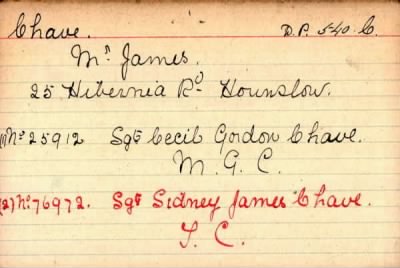 Chave. D.P. 540. C.
Mr. James.
25 Hibernia Rd. Hounslow.
(1) No 25912 Sgt Cecil Gordon Chave.
M. G. C.
(2) No 76972. Sgt Sidney James Chave.
T. C.